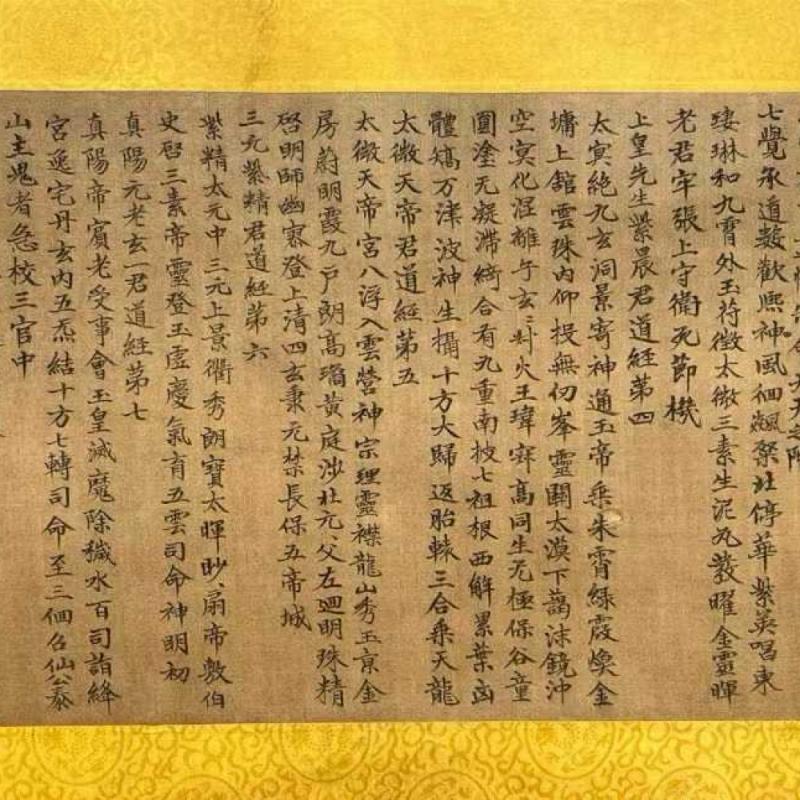 七覺承道數歡熈神風徊飄槩北停華紫英唱東
瓊琳和九霄外玉符徵太微三素生泥丸發曜金靈暉
老君牢張上守衛死節機
上皇先生紫晨君道經第四
太寞絶九玄洞景寄神通玉帝乗朱霄緑霞煥金
墉上館雲珠内仰投無仞峯靈關太漠下藹沫鏡沖
空寞化涅離午玄二封火王瑋
髙同生无極保谷童
圓塗无凝滯綺合有九重南披七祖根西解累葉凶
體矯万津波神生攝十方大歸返胎轅三合乗天龍
太微天帝君道經第五
太微天帝宮八浮入雲營神宗理靈襟龍山秀玉京金
房蔚明霞九戸朗髙瑎黄庭涉壮元父左迴明珠精
啓明師幽寥登上清四玄秉元禁長保五帝城
三元紫精君道經第六
紫精太元中三元上景衢秀朗寶太暉眇扇帝敷伯
史啓三素帝靈登玉虚慶氣育五雲司命神明初
真陽元老玄一君道經第七
真陽帝賓老受事會玉皇滅魔除穢水百司詣絳
宮逸宅丹玄内五炁結十方七轉司命至三個召仙公泰
山主鬼者急校三官中